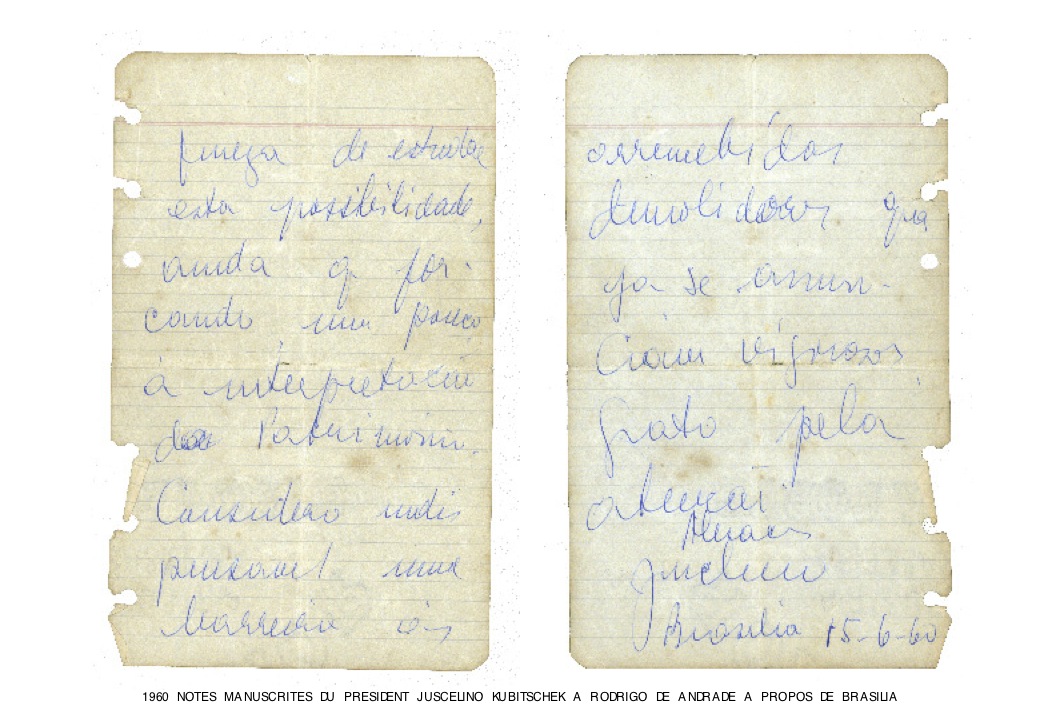 fineza de estudar
esta possibilidade,
ainda q for-
çando um pouco
a interpretação
do Patrimonio.
Considero indis
pensavel uma
barreira às
arremetidas
demolidoras que
ja se anun-
ciam vigorosas
Grato pela
atenção
Abraços
Juscelino
Brasilia 15-6-60
1960 NOTES MANUSCRITES DU PRESIDENT JUSCELINO KUBITSCHEK A RODRIGO DE ANDRADE A PROPOS DE BRASILIA